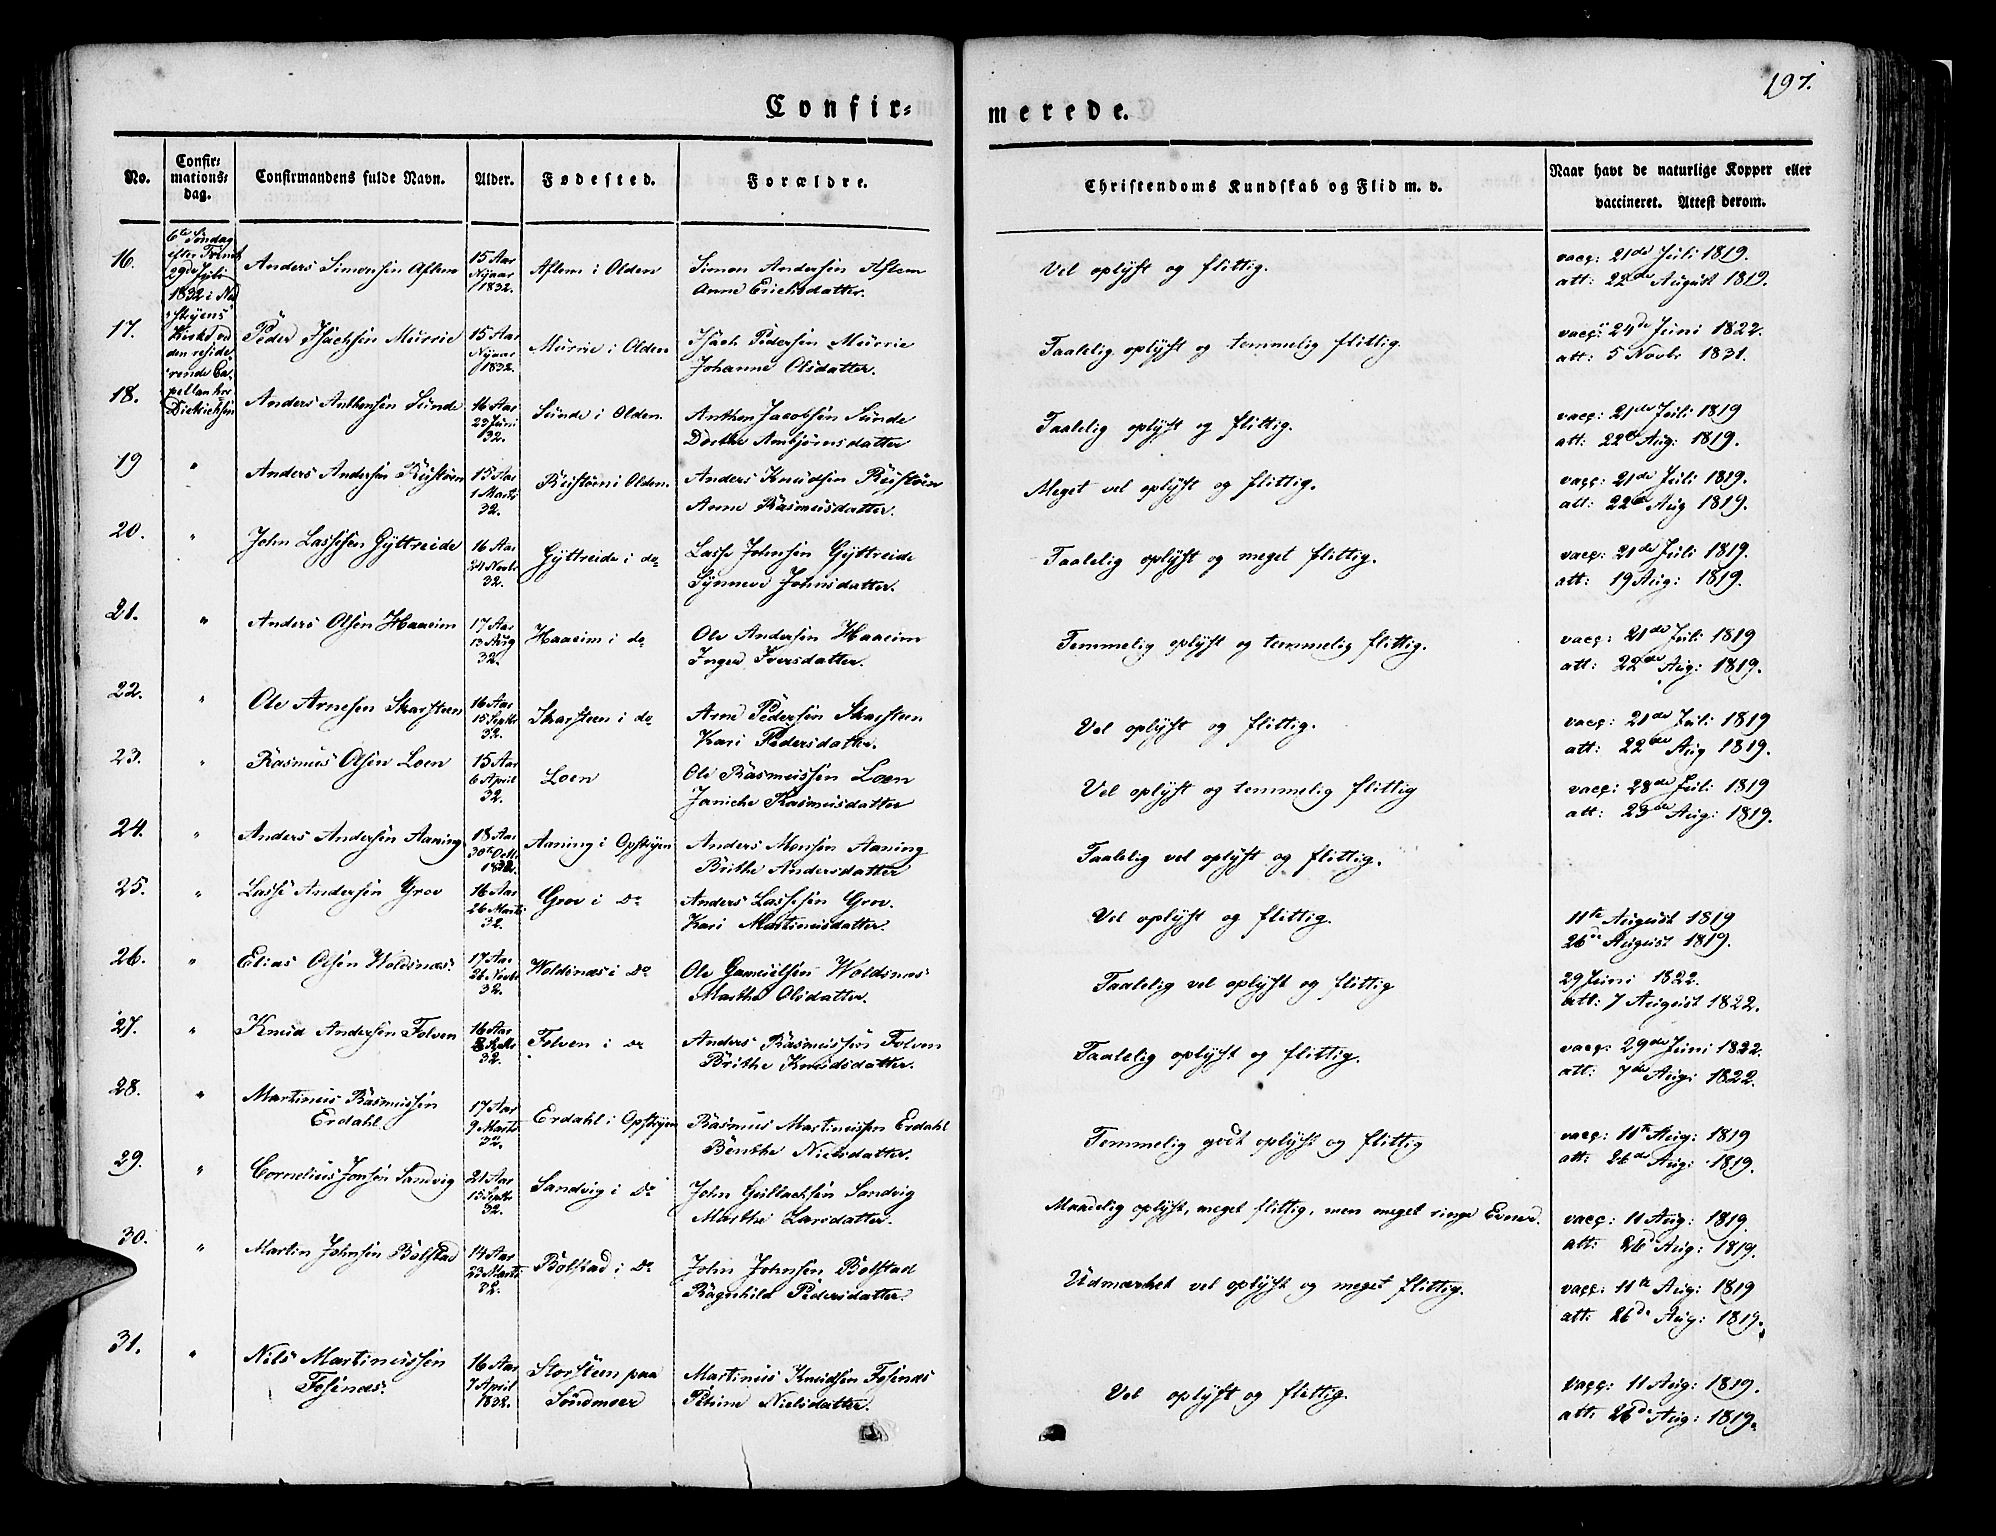 197.
Confir=
merede.
No.
Confir=
mations=
dag.
Confirmandens fulde Navn.
Alder.
Fødested.
Forældre.
Christendoms Kundskab og Flid m. v.
Naar havt de naturlige Kopper eller
vaccineret. Attest derom.
6te Søndag
efter Trinit
29de Juli
1832 i Ned
Kirke
16. Anders Simonsen Aflem 15 Aar Aflem i Olden Simon Andersen Aflem Vel oplyst og flittig. vacc: 21de Juli 1819.
Nijaar 1832. Anne Erichsdatter. att: 22de August 1819.
17. Peder Isachsen Murrie 15 Aar Murrie i Olden Isach Pedersen Murrie Taalelig oplyst og temmelig flittig. vacc: 24de Juni 1822.
Nijaar 1832. Johanne Olsdatter. att: 5 Novbr 1831.
18. Anders Anthensen Sunde 16 Aar Sunde i Olden. Anthen Jacobsen Sunde Taalelig oplyst og flittig. vacc: 21de Juli 1819
Juni 32. Dorthe Ambjørnsdatter att: 22de Aug: 1819.
19 " Anders Andersen 15 Aar i Olden. Anders Knudsen Meget vel oplyst og flittig. vacc: 21de Juli 1819.
1 Marts 32. Anne Rasmusdatter. att: 22de Aug 1819.
20. " John Lassesen Gyttreide 16 Aar Gyttreide i do Lasse Johnsen Gyttreide Taalelig oplyst og meget flittig. vacc: 21de Juli 1819.
24 Novbr 32. Synneve Johnsdatter. att: 19 Aug: 1819.
21. " Anders Olsen Haaeim 17 Aar Haaeim i do Ole Andersen Haaeim Temmelig oplyst og temmelig flittig. vacc: 21de Juli 1819
13 Aug 32. Inger Iversdatter. att: 22de Aug: 1819.
22. " Ole Arnesen Skarsteen 16 Aar Skarsteen i do Arne Pedersen Skarsteen Vel oplyst og flittig. vacc: 21de Juli 1819
15 Septbr 32. Kari Pedersdatter. att: 22de Aug 1819.
23. " Rasmus Olsen Loen 15 Aar Loen Ole Rasmussen Loen Vel oplyst og temmelig flittig vacc: 28de Juli 1819
6 April 32. Janiche Rasmusdatter att: 23de Aug: 1819.
24. " Anders Andersen Aaning 18 Aar Aaning i Opstryen Anders Monsen Aaning Taalelig vel oplyst og flittig.
30te Octbr Brithe Andersdatter
25. " Lasse Andersen Grov 16 Aar Grov i Do Anders Lassesen Grov. Vel oplyst og flittig. 11te August 1819
26 Marts 32. Kari Martinusdatter. 26de August 1819.
26. " Elias Olsen Woldsnæs. 17 Aar Woldsnæs i Do Ole Gamuelsen Woldsnæs Taalelig vel oplyst og flittig 29 Juni 1822.
26 Novbr 32. Marthe Olsdatter. att: 7 August 1822.
27. " Knud Andersen Folven 16 Aar Folven i Do Anders Rasmussen Folven Taalelig oplyst og flittig. vacc: 29de Juni 1822.
Septbr 32. Brithe Knudsdatter. att: 7de Aug: 1822.
28. " Martinus Rasmussen 17 Aar Erdahl i Opstryen Rasmus Martinussen Erdahl Temmelig godt oplyst og flittig vacc: 11te Aug: 1819
Erdahl. 9 Marts 32. Benthe Nielsdatter. att: 26de Aug: 1819.
29. " Cornelius Jonsen Sandvig 21 Aar Sandvig i Do John Gullachsen Sandvig Maadelig oplyst, meget flittig, men meget ringe Evner. vacc: 11 Aug: 1819.
15 Septbr 32. Marthe Larsdatter. att: 26d Aug: 1819.
30. " Martin Johnsen Bolstad 14 Aar Bolstad i Do John Johnsen Bolstad Udmærket vel oplyst og meget flittig. vacc: 11te Aug: 1819
23 Marts 32. Ragnhild Pedersdatter. att: 26de Aug: 1819.
31. " Nils Martinussen 16 Aar Storsteen paa Martinus Knudsen Fosnæs Vel oplyst og flittig. vacc: 11 Aug: 1819.
Fosnæs. 7 April 1832. Søndmøer Petrine Nielsdatter. att: 26de Aug: 1819.